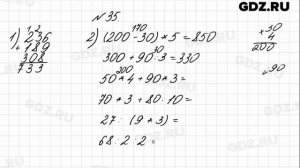 GDZ.RU
№ 35
1) 236
+ 189
308
733
2) (200 - 30) * 5 = 850
170
300 + 90 * 3 = 330
30
50 * 4 + 90 * 3 =
200
70 * 3 + 80 · 10 =
27 : (9 * 3) =
68 · 2 · 2 =
× 50
4
200
90
GDZ.RU
GDZ.RU